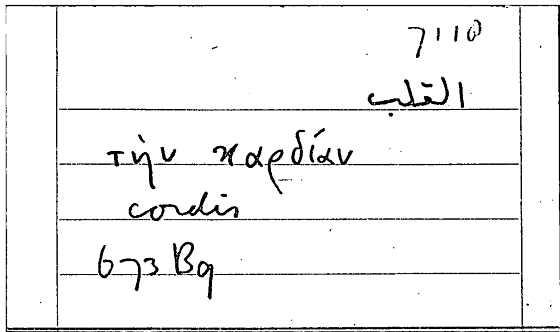 القلب
τὴν καρδίαν
cordis
673 B9